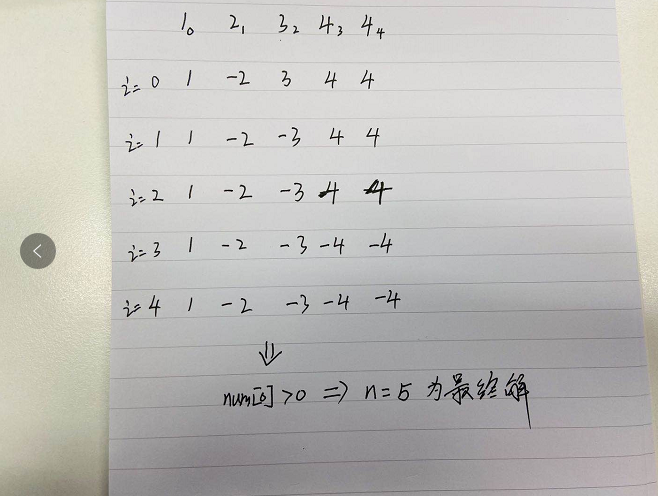 1₀ 2₁ 3₂ 4₃ 4₄
i=0 1 -2 3 4 4
i=1 1 -2 -3 4 4
i=2 1 -2 -3 -4 4
i=3 1 -2 -3 -4 -4
i=4 1 -2 -3 -4 -4
⇓
num[0]>0 ⇒ n=5 为最终解